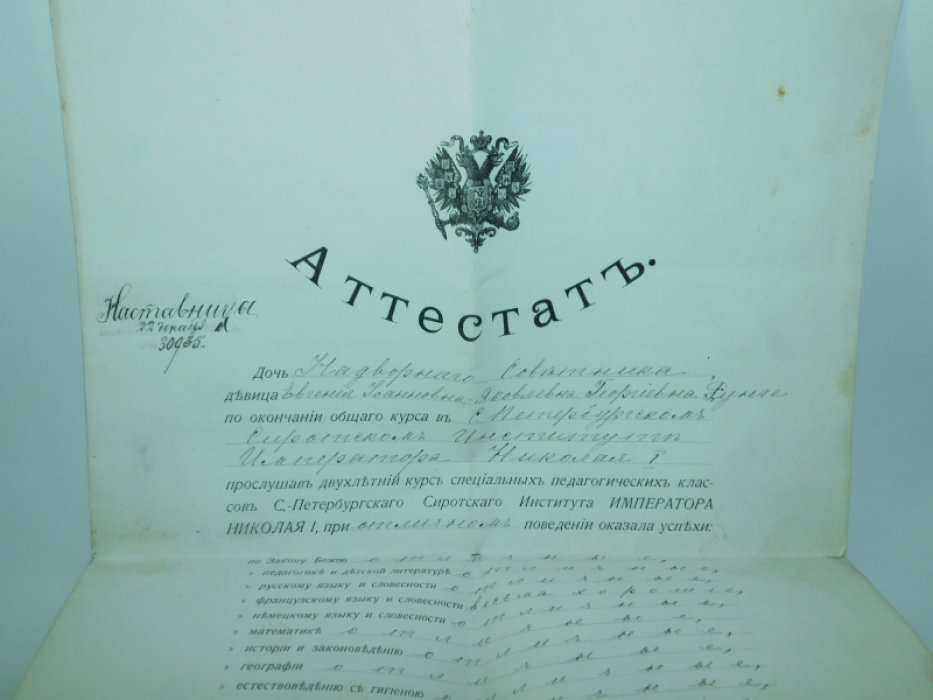 Аттестатъ.
Наставницы
22 декаб
30935.
Дочь Надворнаго Совѣтника
дѣвица Евгенія Іоанновна-Яковлевна Георгіевна Хунге
по окончаніи общаго курса въ С Петербургскомъ
Сиротскомъ Институтѣ
Императора Николая I
прослушавъ двухлѣтній курсъ спеціальныхъ педагогическихъ клас-
совъ С.-Петербургскаго Сиротскаго Института ИМПЕРАТОРА
НИКОЛАЯ I, при отличномъ поведеніи оказала успѣхи:
по Закону Божію отличные,
" педагогикѣ и дѣтской литературѣ отличные,
" русскому языку и словесности отличные,
" французскому языку и словесности весьма хорошіе,
" нѣмецкому языку и словесности отличные,
" математикѣ отличные,
" исторіи и законовѣдѣнію отличные,
" географіи отличные,
" естествовѣдѣнію съ гигіеною отличные,